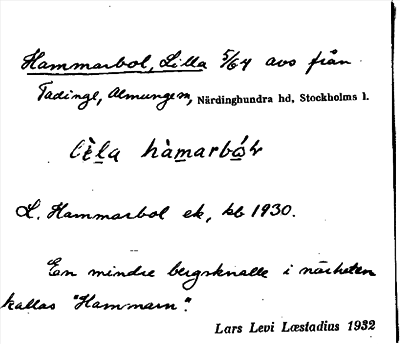 Hammarbol, Lilla 5/64 avs från
Tadinge, Almungem, Närdinghundra hd, Stockholms l.
L. Hammarbol ek, kb 1930.
En mindre bergsknalle i närheten
kallas "Hammarn".
Lars Levi Læstadius 1932